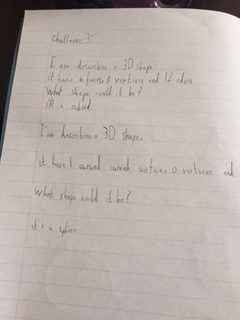 Challenge 3:
I am describing a 3D shape
it have 6 faces, 8 vertices and 12 edges
What shape could it be?
it's a cuboid
I'm describing a 3D shape.
it have 1 curved surface 0 vertices and
What shape could it be?
it's a sphere